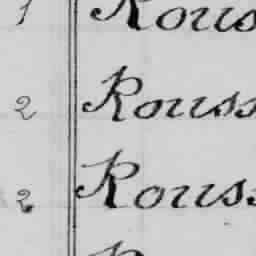 1 Rous
2 Rouss
2 Rouss